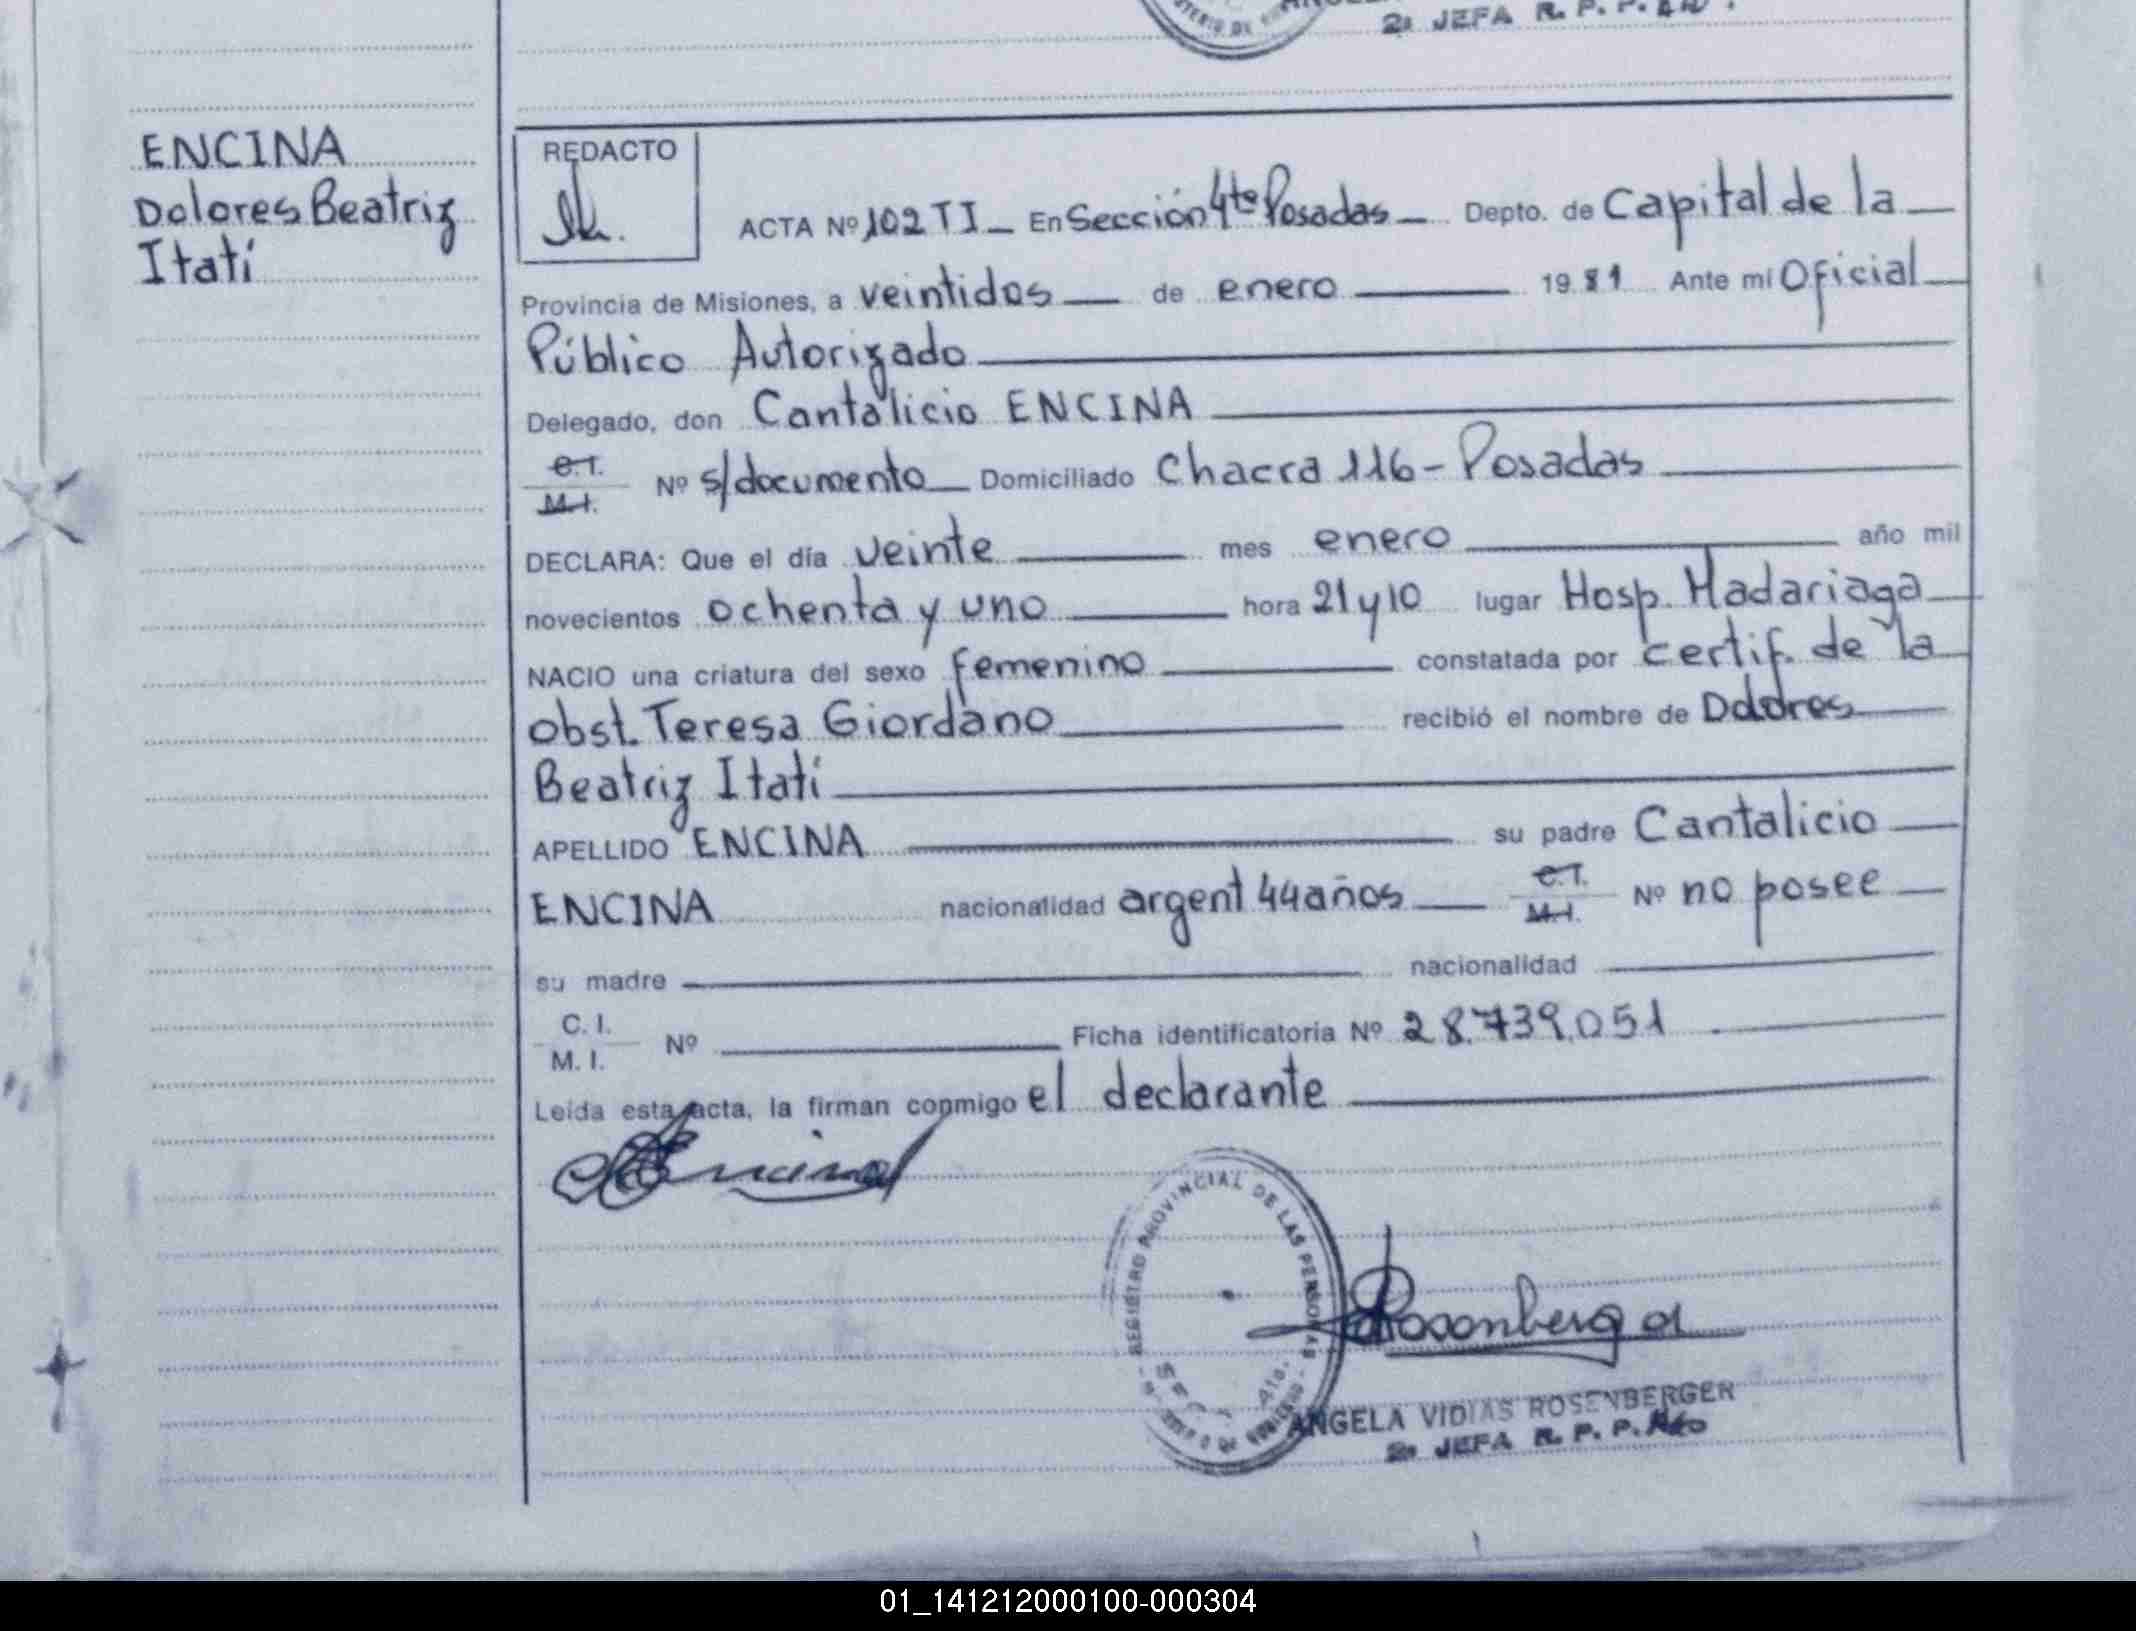 2a JEFA R. P. P.
ENCINA
Dolores Beatriz
Itatí
REDACTO
ACTA Nº 102 TI En Sección 4ta Posadas Depto. de Capital de la
Provincia de Misiones, a veintidos de enero 19 81 Ante mi Oficial
Público Autorizado
Delegado, don Cantalicio ENCINA
C.I.
M.I. Nº s/documento Domiciliado Chacra 116 - Posadas
DECLARA: Que el día veinte mes enero año mil
novecientos ochenta y uno hora 21 y 10 lugar Hosp. Madariaga
NACIO una criatura del sexo femenino constatada por certif. de la
obst. Teresa Giordano recibió el nombre de Dolores
Beatriz Itatí
APELLIDO ENCINA su padre Cantalicio
ENCINA nacionalidad argent 44 años C.I. M.I. Nº no posee
su madre nacionalidad
C. I.
M. I. Nº Ficha identificatoria Nº 28.739.051
Leída esta acta, la firman conmigo el declarante
Encina
REGISTRO PROVINCIAL DE LAS PERSONAS
Rosenberger
ANGELA VIDIAS ROSENBERGER
2a JEFA R. P. P.
01_141212000100-000304